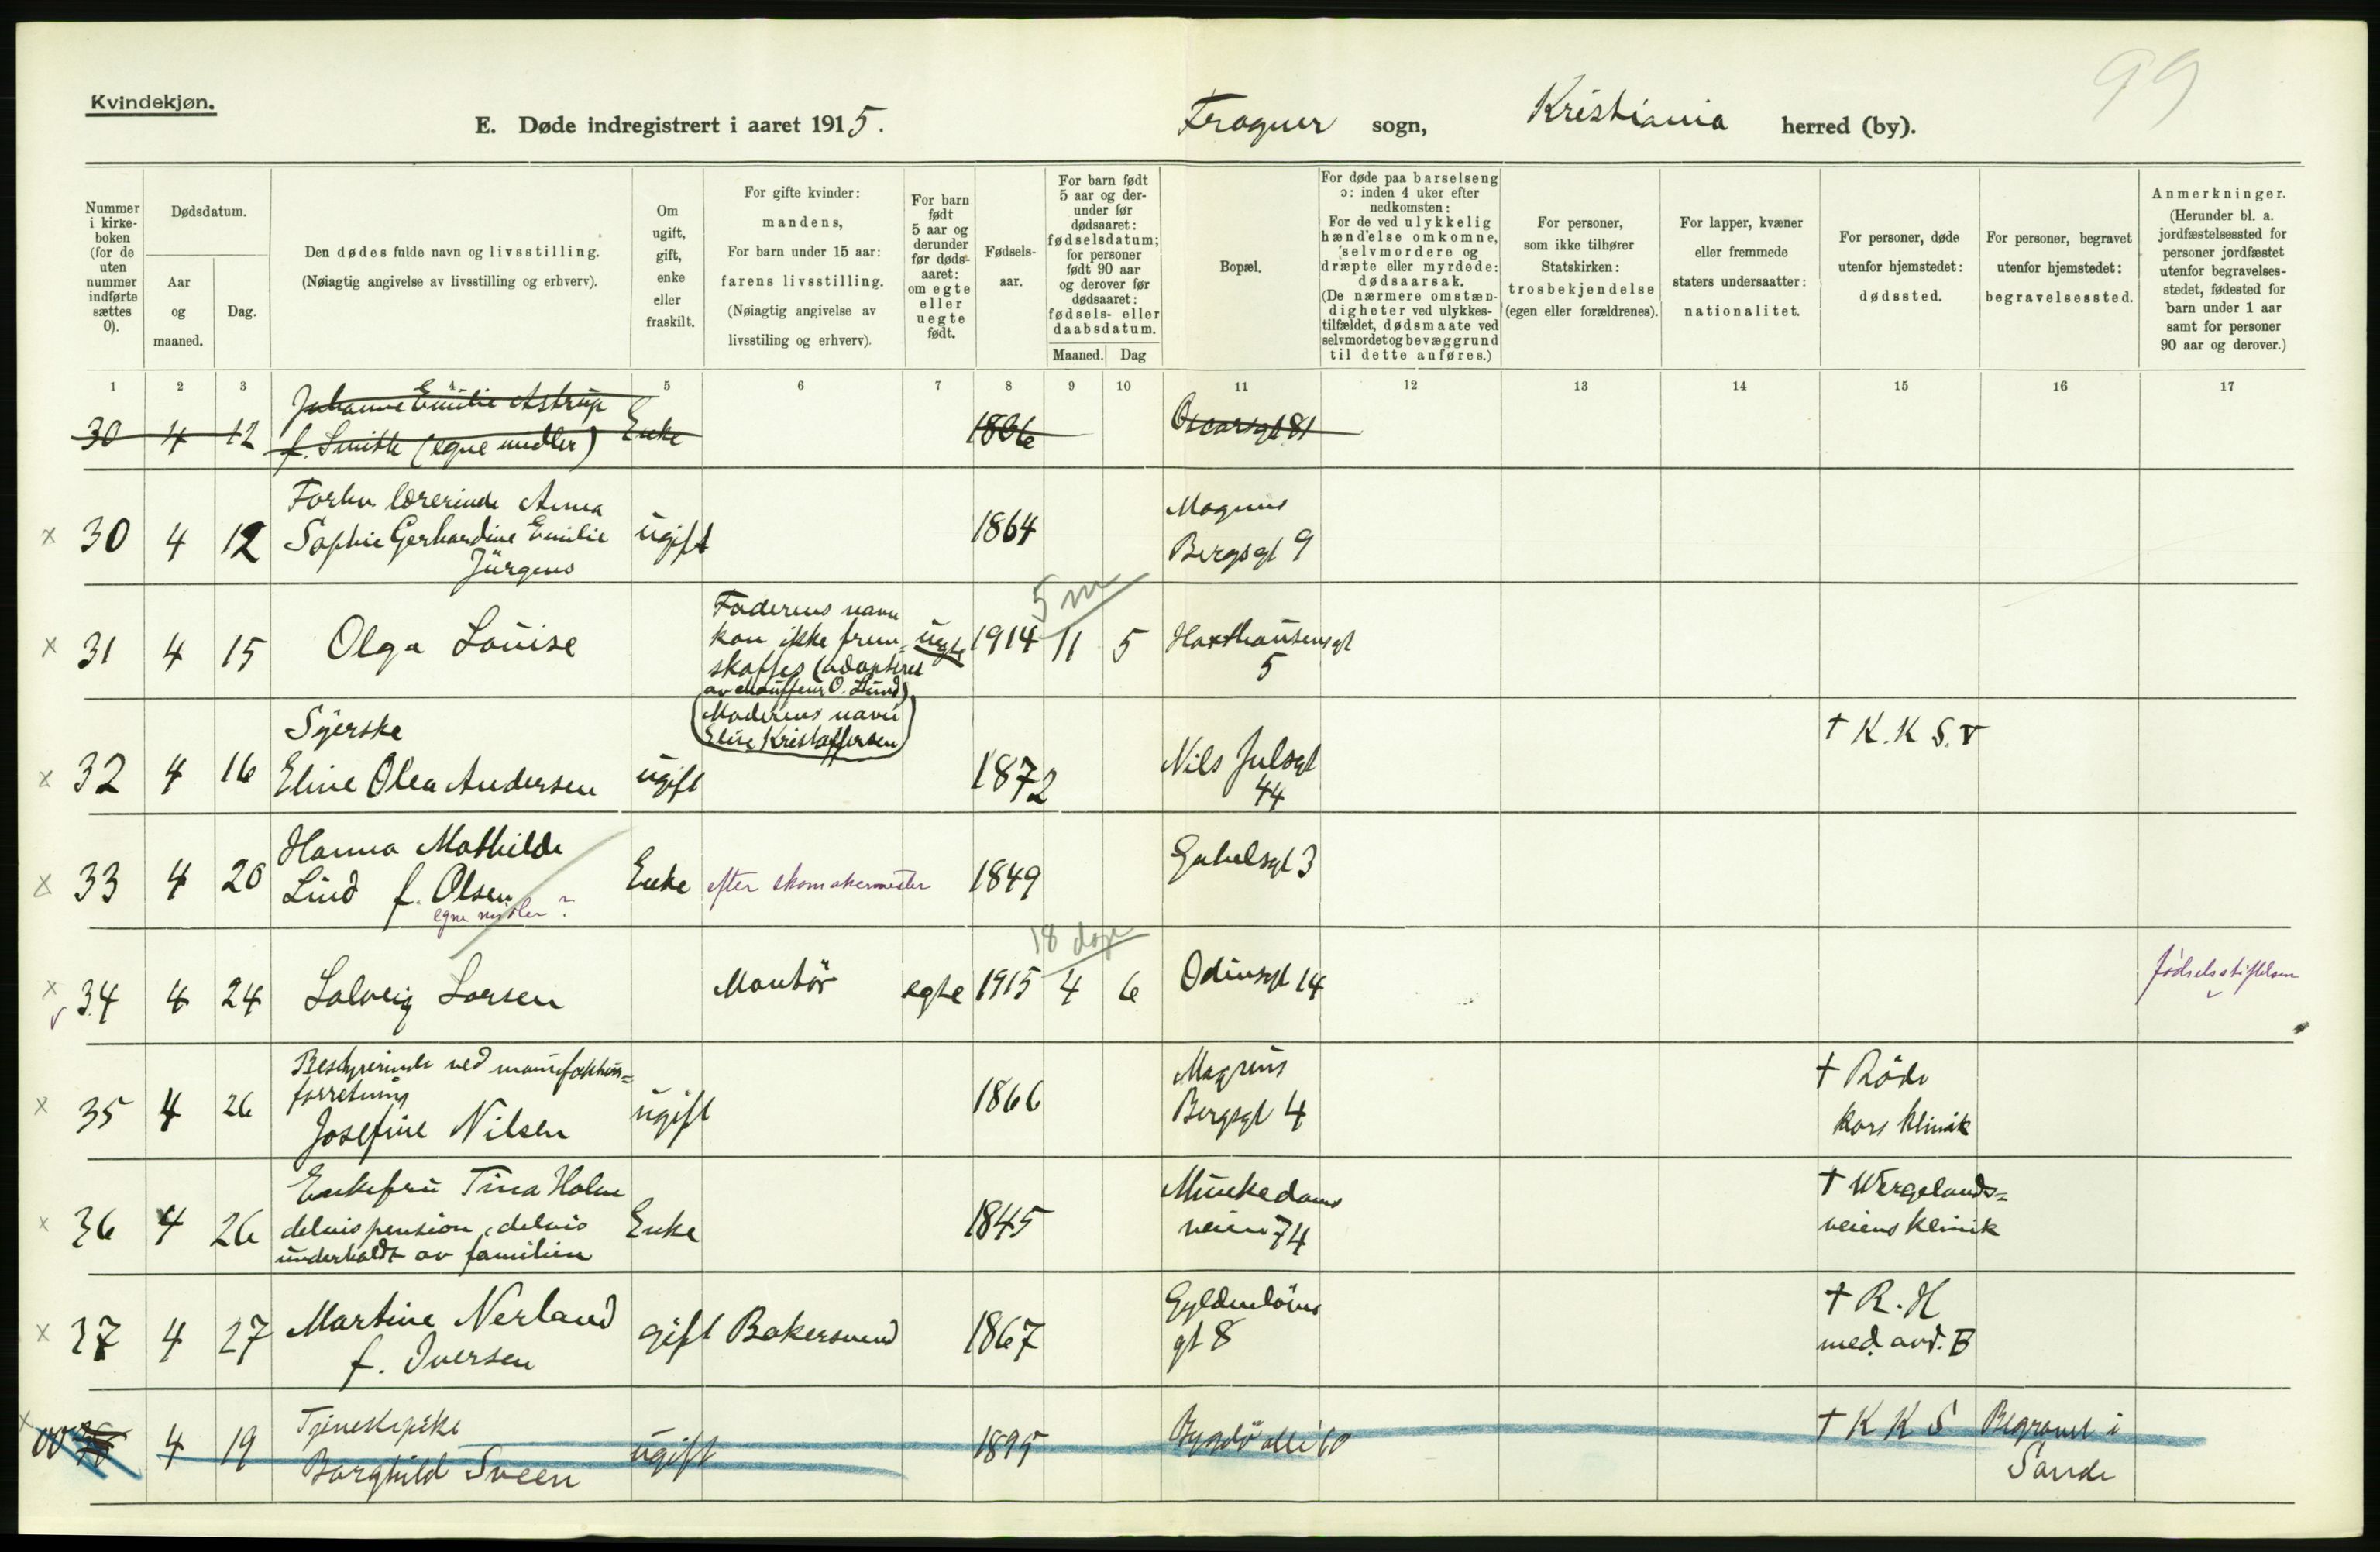 99
Kvindekjøn.
E. Døde indregistrert i aaret 1915. Frogner sogn, Kristiania herred (by).
Nummer i kirke- boken (for de uten nummer indførte sættes 0).
Dødsdatum.
Aar og maaned.
Dag.
Den dødes fulde navn og livsstilling.
(Nøiagtig angivelse av livsstilling og erhverv).
Om ugift, gift, enke eller fraskilt.
For gifte kvinder: mandens,
For barn under 15 aar: farens livsstilling.
(Nøiagtig angivelse av livsstiling og erhverv).
For barn født 5 aar og derunder før døds- aaret: om egte eller uegte født.
Fødsels- aar.
For barn født 5 aar og der- under før dødsaaret: fødselsdatum; for personer født 90 aar og derover før dødsaaret: fødsels- eller daabsdatum.
Maaned. Dag
Bopæl.
For døde paa barselseng ɔ: inden 4 uker efter nedkomsten:
For de ved ulykkelig hændelse omkomne, selvmordere og dræpte eller myrdede: dødsaarsak.
(De nærmere omstæn- digheter ved ulykkes- tilfældet, dødsmaate ved selvmordet og bevæggrund til dette anføres.)
For personer, som ikke tilhører Statskirken: trosbekjendelse (egen eller forældrenes).
For lapper, kvæner eller fremmede staters undersaatter: nationalitet.
For personer, døde utenfor hjemstedet: dødssted.
For personer, begravet utenfor hjemstedet: begravelsessted.
Anmerkninger.
(Herunder bl. a. jordfæstelsessted for personer jordfæstet utenfor begravelses- stedet, fødested for barn under 1 aar samt for personer 90 aar og derover.)
1 2 3 4 5 6 7 8 9 10 11 12 13 14 15 16 17
Johanne Emilie Astrup
30 4 12 f. Smith (egne midler) Enke 1806 Oscarsgt 81
Forhv. lærerinde Anna
x 30 4 12 Sophie Gerhardine Emilie ugift 1864 Magnus
Jürgens Bergsgt 9
5 m
Faderens navn
x 31 4 15 Olga Louise kan ikke frem- uegte 1914 11 5 Haxthausensgt
skaffes (adopteret 5
av chauffeur O. Lund)
(Moderens navn
Elise Kristoffersen)
Syerske † K.K S. V
x 32 4 16 Eline Olea Andersen ugift 1872 Nils Julsgt
44
Hanna Mathilde
x 33 4 20 Lind f. Olsen Enke efter skomakermester 1849 Gabelsgt 3
egne midler?
18 dage
x v 34 4 24 Solveig Larsen Montör egte 1915 4 6 Odinsgt 14 fødselsstiftelsen
Bestyrerinde ved manufaktur=
forretning Magnus † Röde
x 35 4 26 Josefine Nilsen ugift 1866 Bergsgt 4 Kors Klinik
Enkefru Tina Holm Munkedams † Wergelands=
x 36 4 26 delvis pension, delvis Enke 1845 veien 74 veiens Klinik
underholdt av familien
Martine Nerland Gyldenlöves † R. H
x 37 4 27 f. Iversen gift Bakersvend 1867 gt 8 med. avd. B
Tjenestepike
x 00 4 19 Borghild Sveen ugift 1895 Bygdö allé 60 † K K S Begravet i
Sande